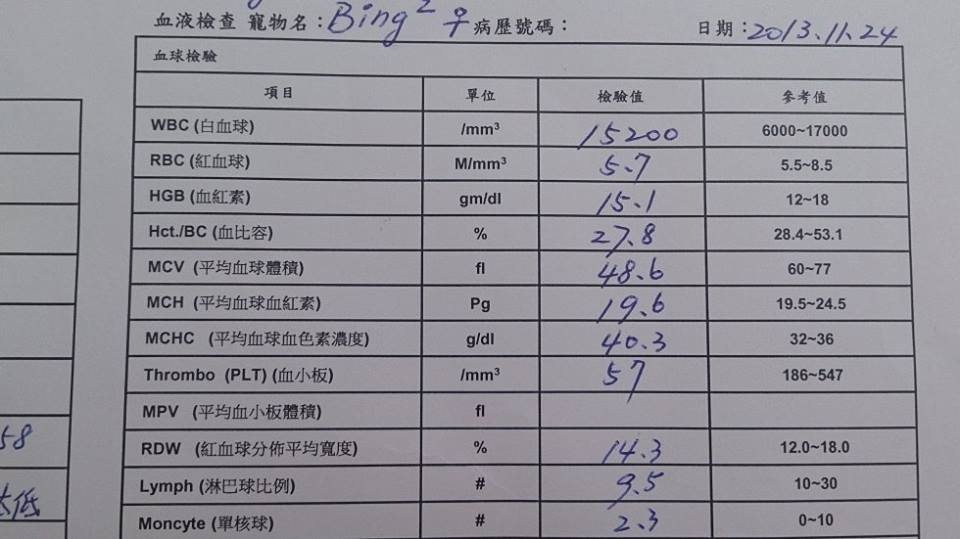 血液檢查 寵物名：Bing² ♀ 病歷號碼： 日期：2013.11.24
血球檢驗
項目 單位 檢驗值 參考值
WBC (白血球) /mm³ 15200 6000~17000
RBC (紅血球) M/mm³ 5.7 5.5~8.5
HGB (血紅素) gm/dl 15.1 12~18
Hct./BC (血比容) % 27.8 28.4~53.1
MCV (平均血球體積) fl 48.6 60~77
MCH (平均血球血紅素) Pg 19.6 19.5~24.5
MCHC (平均血球血色素濃度) g/dl 40.3 32~36
Thrombo (PLT) (血小板) /mm³ 57 186~547
MPV (平均血小板體積) fl
58
RDW (紅血球分佈平均寬度) % 14.3 12.0~18.0
Lymph (淋巴球比例) # 9.5 10~30
太低
Moncyte (單核球) # 2.3 0~10